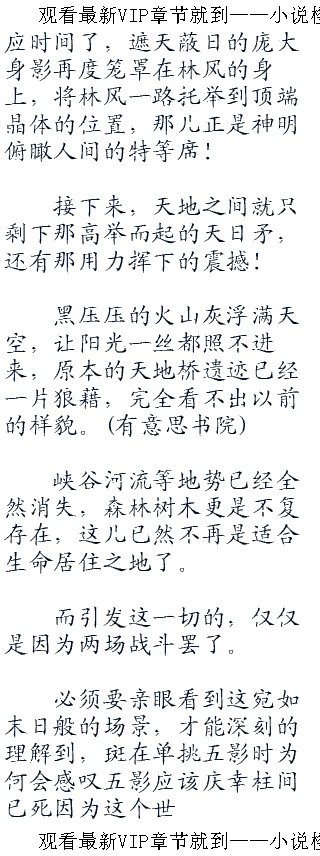 观看最新VIP章节就到——小说
应时间了，遮天蔽日的庞大
身影再度笼罩在林风的身
上，将林风一路托举到顶端
晶体的位置，那儿正是神明
俯瞰人间的特等席！
接下来，天地之间就只
剩下那高举而起的天日矛，
还有那用力挥下的震撼！
黑压压的火山灰浮满天
空，让阳光一丝都照不进
来，原本的天地桥遗迹已经
一片狼藉，完全看不出以前
的样貌。(有意思书院)
峡谷河流等地势已经全
然消失，森林树木更是不复
存在，这儿已然不再是适合
生命居住之地了。
而引发这一切的，仅仅
是因为两场战斗罢了。
必须要亲眼看到这宛如
末日般的场景，才能深刻的
理解到，斑在单挑五影时为
何会感叹五影应该庆幸柱间
已死因为这个世
观看最新VIP章节就到——小说